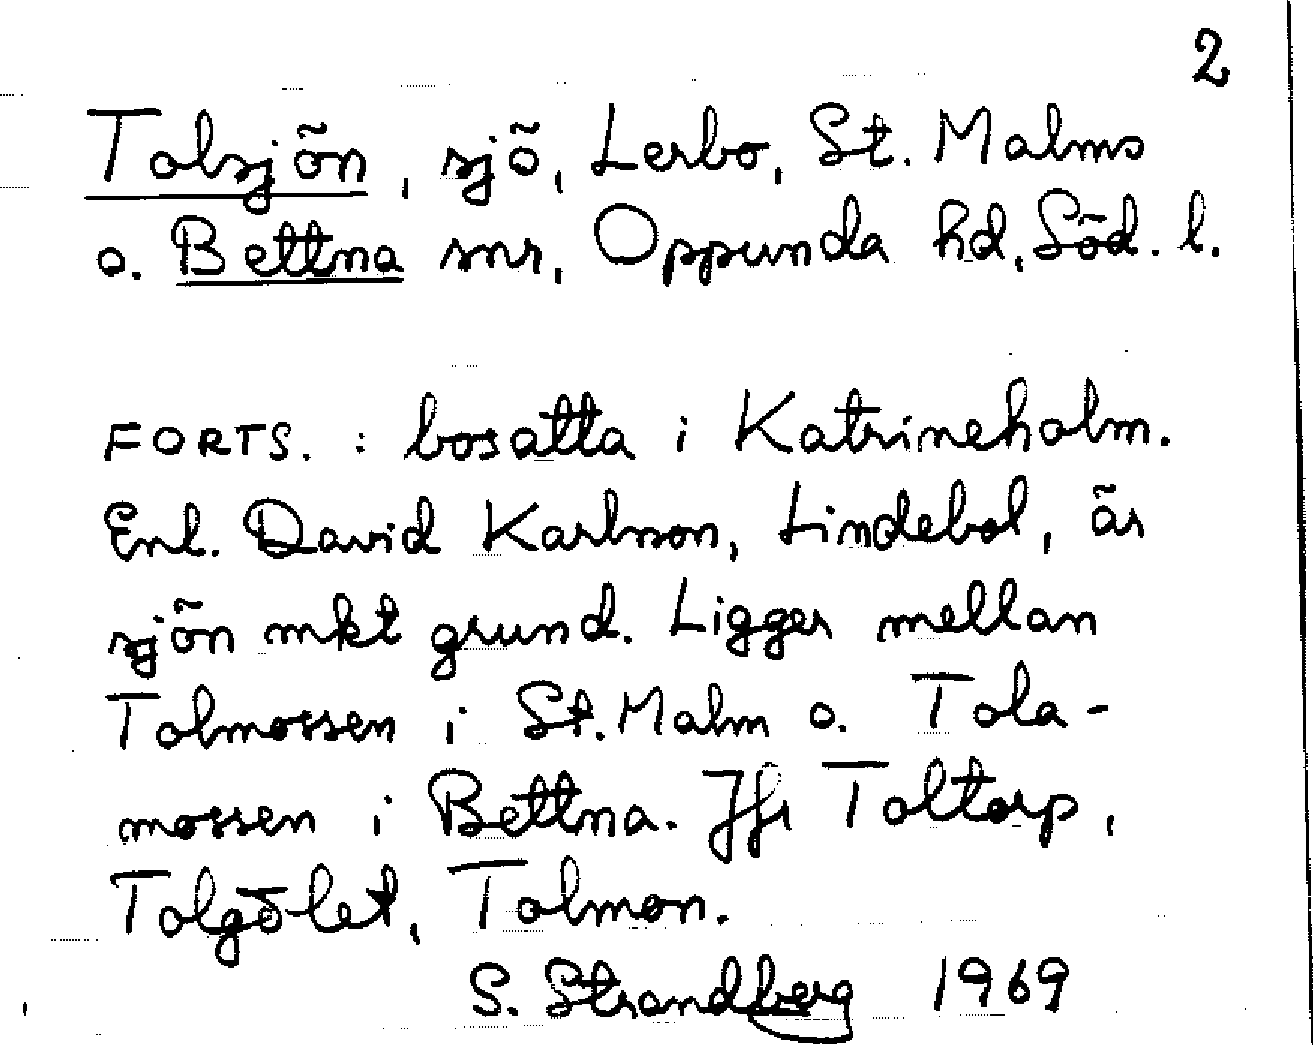 2
Tolsjön, sjö, Lerbo, St. Malms
o. Bettna snr, Oppunda hd, Söd. l.
FORTS. : bosatta i Katrineholm.
Enl. David Karlsson, Lindebol, är
sjön mkt grund. Ligger mellan
Tolmossen i St. Malm o. Tola-
mossen i Bettna. Jfr Toltorp,
Tolgölet, Tolmon.
S. Strandberg 1969